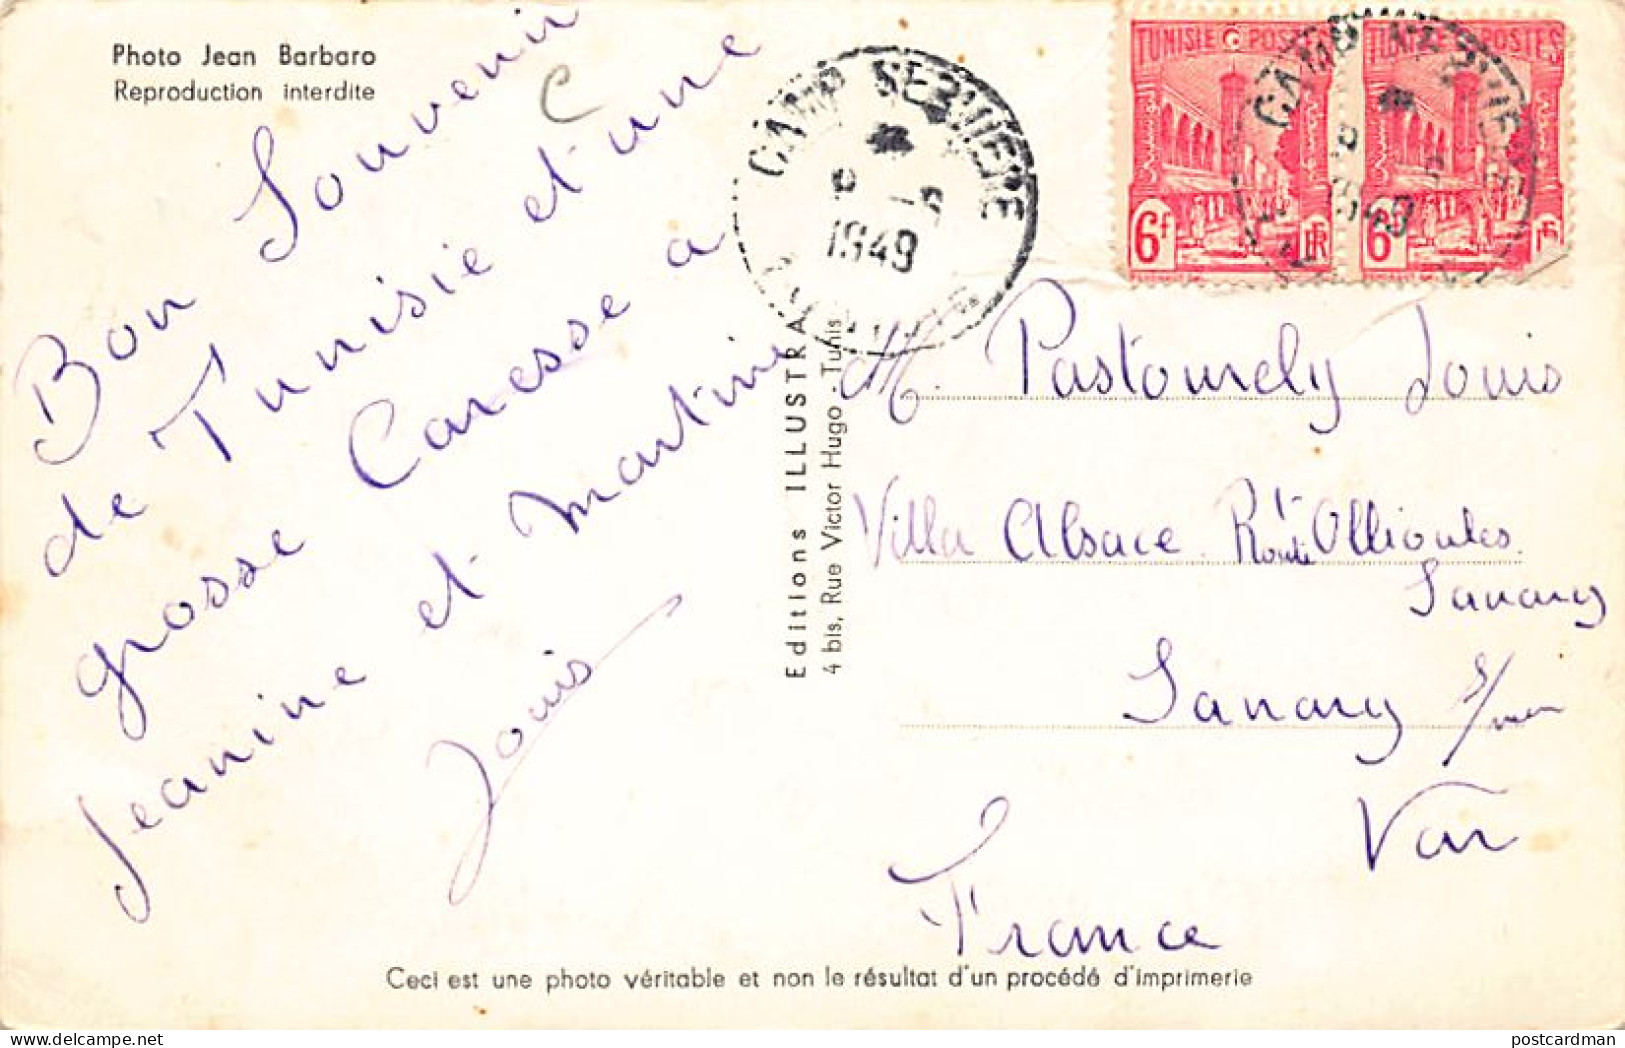 Photo Jean Barbaro
Reproduction interdite
Bon Souvenir
de Tunisie et une
grosse Caresse a
Jeanine et Martine
Louis
Editions ILLUSTRA
4 bis, Rue Victor Hugo - Tunis
CAMP SERVIERE
1949
TUNISIE POSTES
6f RF
TUNISIE POSTES
6f RF
CAMP SERVIERE
1949
M. Pastourely Louis
Villa Alsace Rte Ollioules
Route
Sanary
Sanary s/mer
Var
France
Ceci est une photo véritable et non le résultat d'un procédé d'imprimerie
postcardman